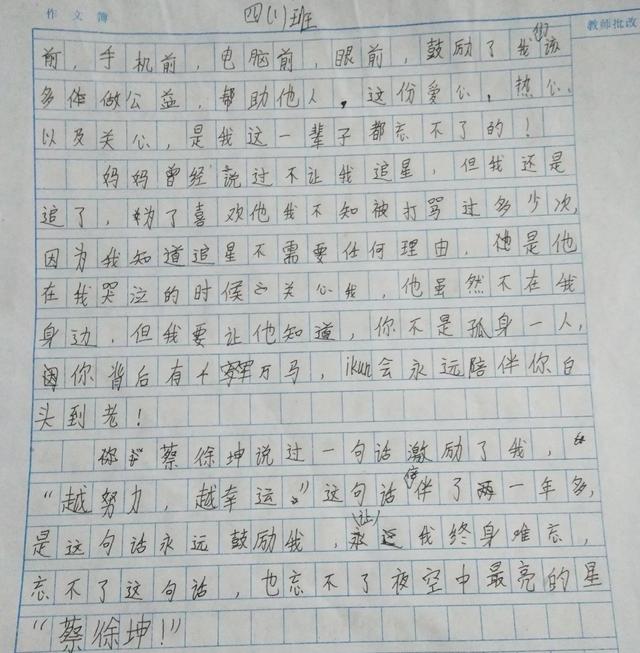 四(1)班
作文簿
教师批改
前，手机前，电脑前，眼前，鼓励了我们该
多作做公益，帮助他人，这份爱心，热心
以及关心，是我这一辈子都忘不了的！
妈妈曾经说过不让我追星，但我还是
追了，为了喜欢他我不知被打骂过多少次，
因为我知道追星不需要任何理由，他是他
在我哭泣的时候关心我，他虽然不在我
身边，但我要让他知道，你不是孤身一人，
因你背后有千军万马，ikun会永远陪伴你白
头到老！
蔡徐坤说过一句话激励了我，
“越努力，越幸运。”这句话伴了一年多，
是这句话永远鼓励我，让我终身难忘，
忘不了这句话，也忘不了夜空中最亮的星
“蔡徐坤！”